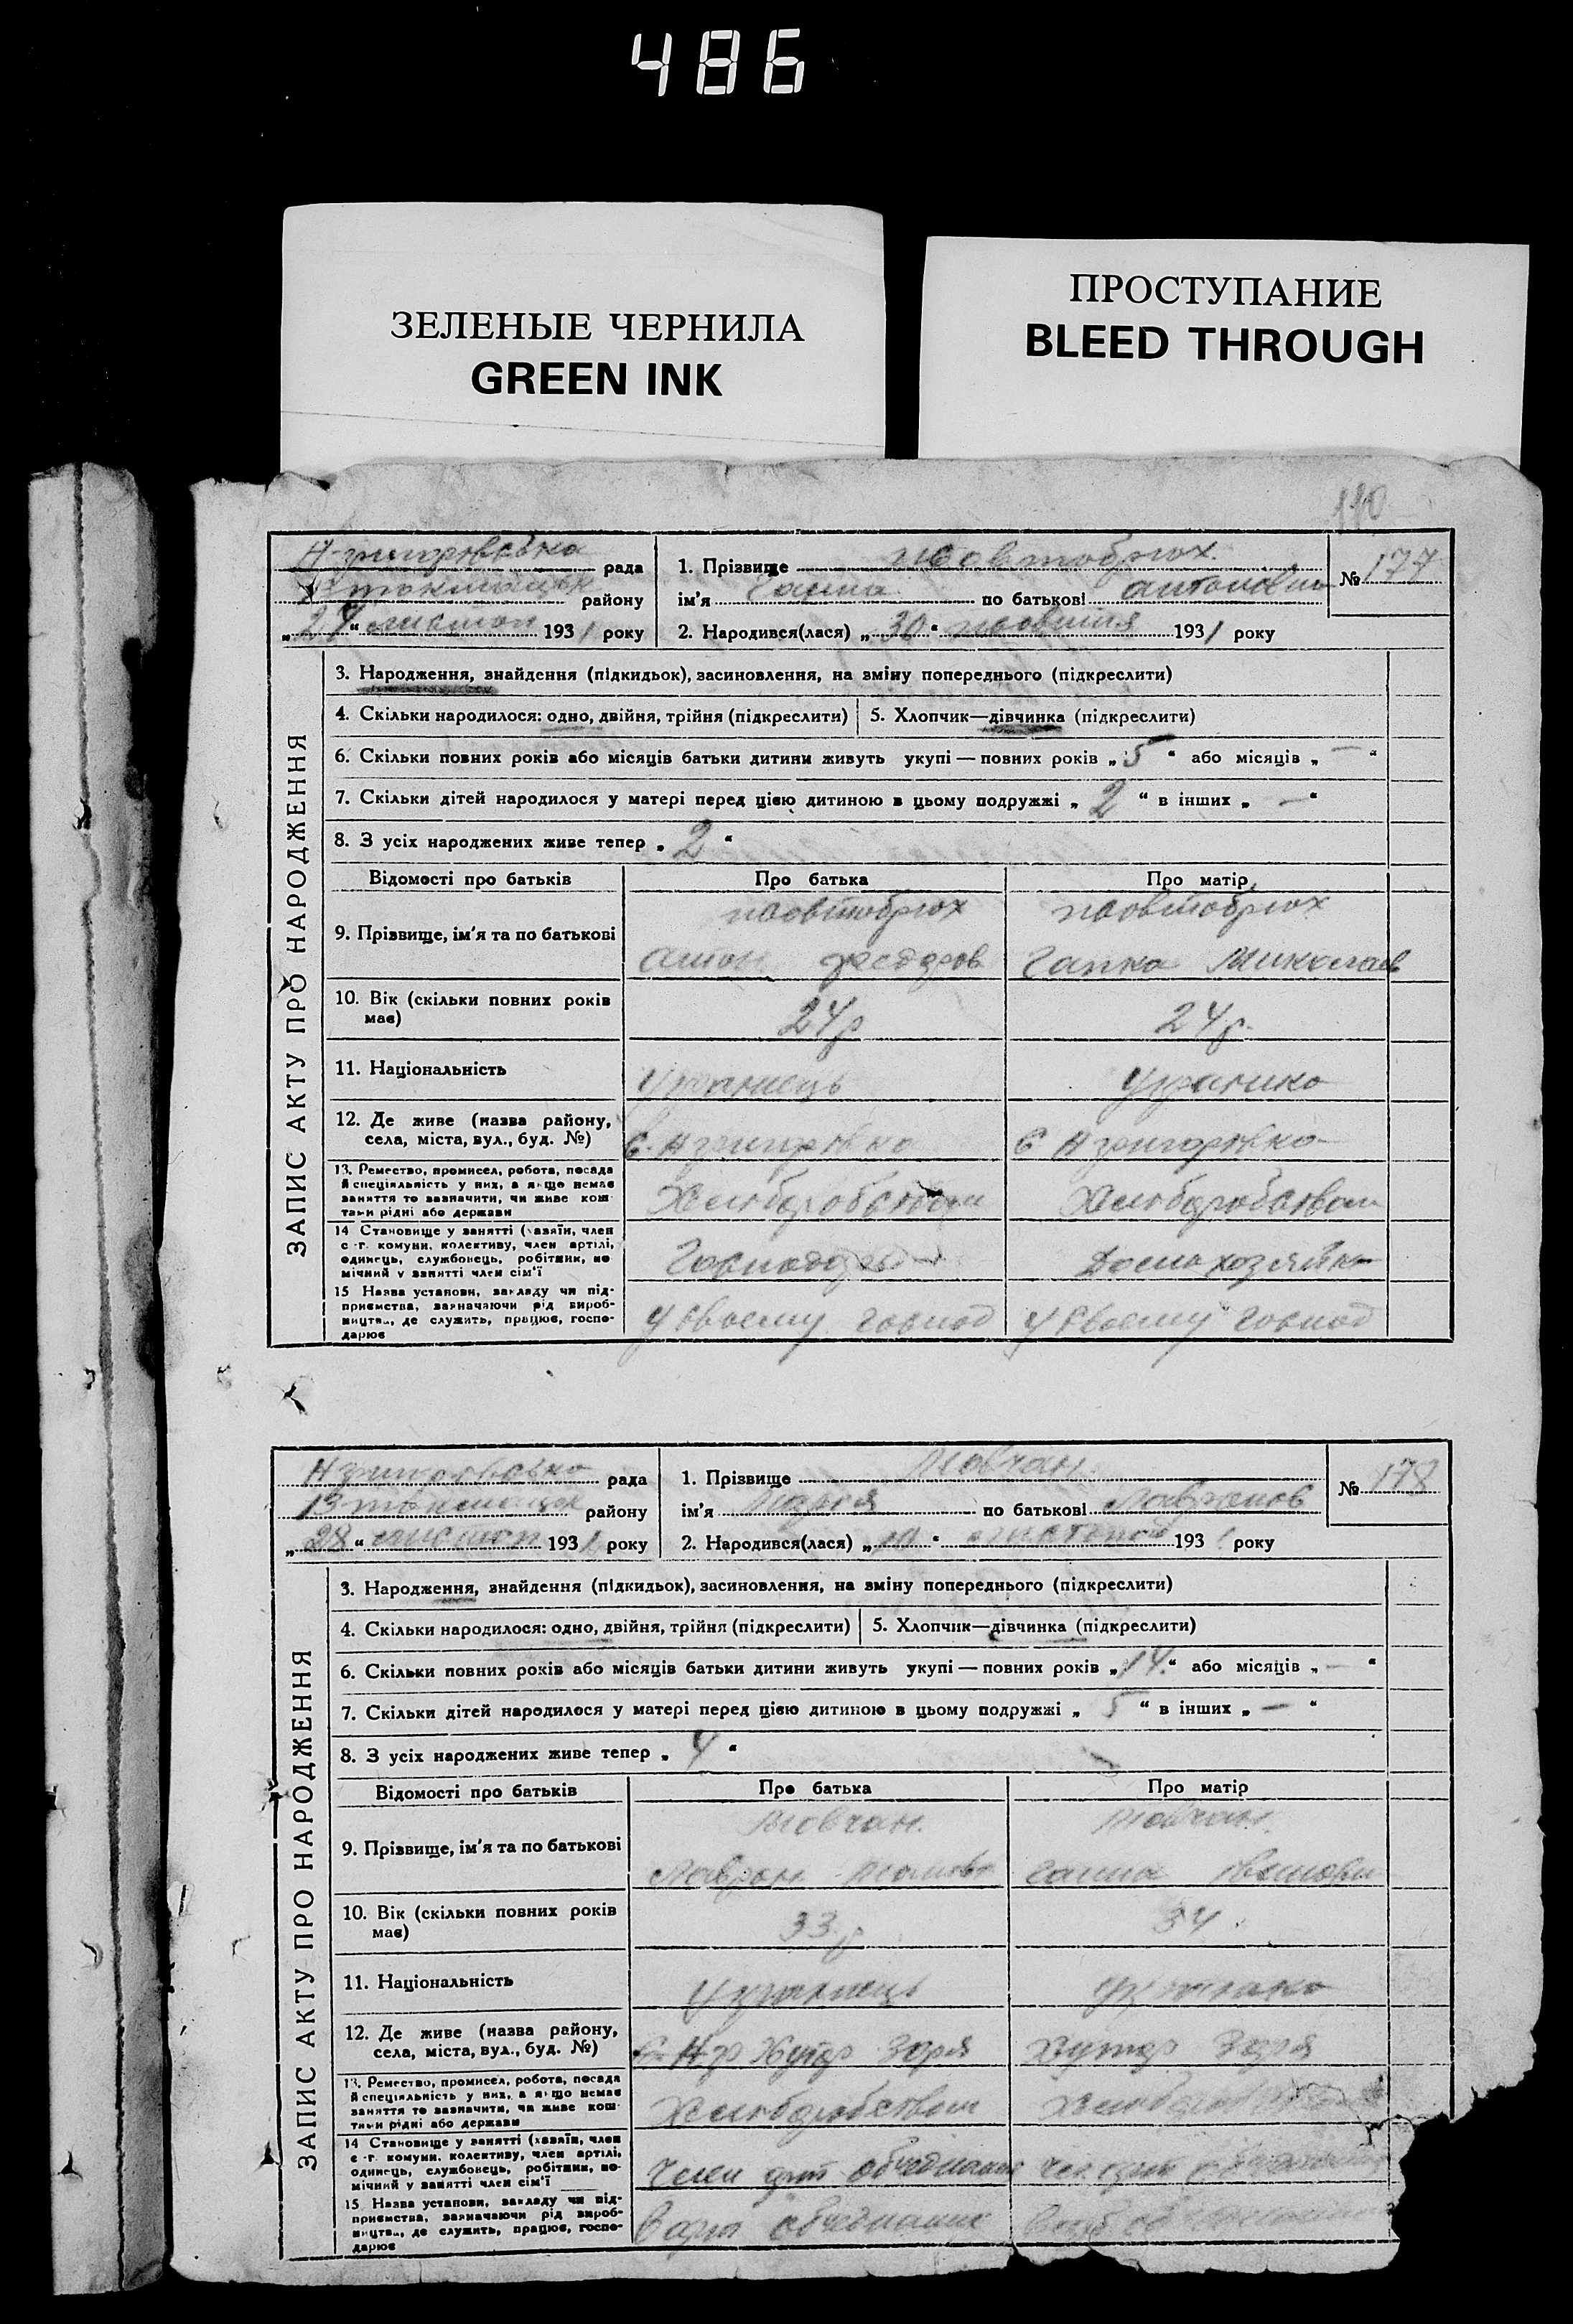 486
ЗЕЛЕНЫЕ ЧЕРНИЛА
GREEN INK
ПРОСТУПАНИЕ
BLEED THROUGH
110
Н-григорівська рада
В токмацьк району
„27“ листоп 1931 року
1. Прізвище Жовтобрюх
ім'я Ганна по батькові
2. Народився(лася) „30“ жовтня 1931 року
№ 177
ЗАПИС АКТУ ПРО НАРОДЖЕННЯ
3. Народження, знайдення (підкидьок), засиновлення, на зміну попереднього (підкреслити)
4. Скільки народилося: одно, двійня, трійня (підкреслити) 5. Хлопчик—дівчинка (підкреслити)
6. Скільки повних років або місяців батьки дитини живуть укупі — повних років „5“ або місяців „—“
7. Скільки дітей народилося у матері перед цією дитиною в цьому подружжі „2“ в інших „—“
8. З усіх народжених живе тепер „2“
Відомості про батьків Про батька Про матір
9. Прізвище, ім'я та по батькові
жовтобрюх жовтобрюх
Антон федоров Гапка Миколаев
10. Вік (скільки повних років має) 24 р 24 р.
11. Національність
Українець Українка
12. Де живе (назва району, села, міста, вул., буд. №)
с. Н григорівка с Н григорівка
13. Ремество, промисел, робота, посада й спеціяльність у них, а якщо немає заняття то зазначити, чи живе коштами рідні або держави
Хліборобством Хліборобством
14 Становище у занятті (хазяїн, член с.-г. комуни, колективу, член артілі, одинець, службонець, робітник, помічний у занятті член сім'ї
Домохозяйка
15 Назва установи, закладу чи підприємства, зазначаючи рід виробництва, де служить, працює, господарює
У Своєму господ У Своєму господ
Н григорівсько рада
В токмацьк району
„28“ листоп 1931 року
1. Прізвище Мовчан.
ім'я Марія по батькові Лавренов
2. Народився(лася) „10“ листопад 193 року
№ 178
ЗАПИС АКТУ ПРО НАРОДЖЕННЯ
3. Народження, знайдення (підкидьок), засиновлення, на зміну попереднього (підкреслити)
4. Скільки народилося: одно, двійня, трійня (підкреслити) 5. Хлопчик—дівчинка (підкреслити)
6. Скільки повних років або місяців батьки дитини живуть укупі — повних років „14“ або місяців „—“
7. Скільки дітей народилося у матері перед цією дитиною в цьому подружжі „5“ в інших „—“
8. З усіх народжених живе тепер „4“
Відомості про батьків Про батька Про матір
9. Прізвище, ім'я та по батькові
Мовчан. Мовчан.
Ганна
10. Вік (скільки повних років має) 33 р 34
11. Національність
Українець
12. Де живе (назва району, села, міста, вул., буд. №)
Хутор Зоря Хутор Зоря
13. Ремество, промисел, робота, посада й спеціяльність у них, а якщо немає заняття то зазначити, чи живе коштами рідні або держави
Хліборобством
14 Становище у занятті (хазяїн, член с.-г. комуни, колективу, член артілі, одинець, службонець, робітник, помічний у занятті член сім'ї
Член
15 Назва установи, закладу чи підприємства, зазначаючи рід виробництва, де служить, працює, господарює